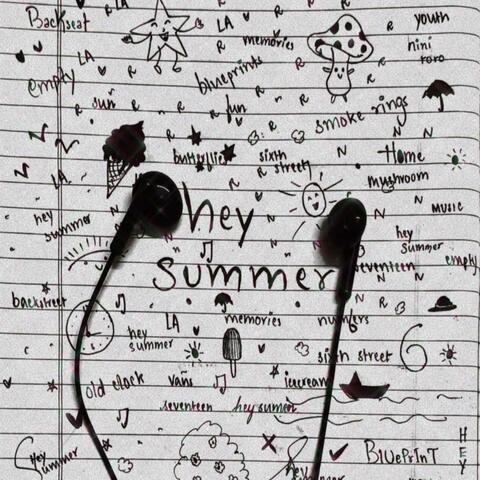 Backseat
LA
LA
youth
memories
hini
toro
LA
blueprints
empty
R
R
sun
R
R
fun
smoke rings
R
N
N
butterflies
sixth
street
N
Home
LA
mushroom
hey
summer
hey
MUSIC
hey
summer
summer
seventeen
empty
backstreet
LA
memories
numbers
hey
summer
sixth street
old clock
vans
icecream
seventeen
hey summer
Hey
summer
BLUEPRINT
HEY
hey